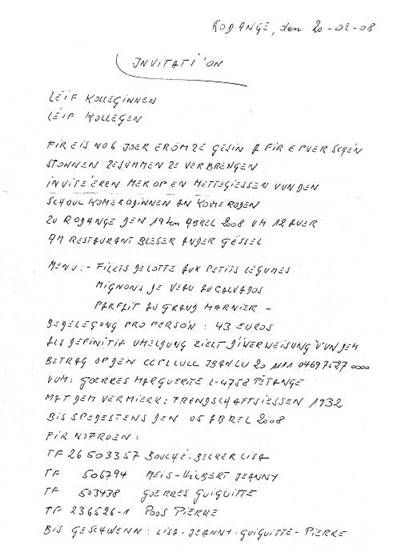 RODANGE, den 20-02-08
INVITATI'ON
LEIF KOLLEGINNEN
LEIF KOLLEGEN
FIR EIS NO 6 JOER EROM ZE GESIN & FIR E PUER SCHÉIN
STONNEN ZESUMMEN ZE VERBRENGEN
INVITÉIEREN MER OP EN METTEGIESSEN VUN DEN
SCHOULKOMERODINNEN AN KOMERODEN
ZU RODANGE DEN 19ten ABREL 2008 UM 12 AUER
AM RESTAURANT BLESER ANDER GESSEL
MENU:- FILETS DE LOTTE AUX PETITS LEGUMES
MIGNONS DE VEAU AU CALVADOS
PARFAIT AU GRAND MARNIER -
BEDELEGUNG PRO PERSON : 43 EUROS
ALS DEFINITIV UMELDUNG ZIELT D'IWERWEISUNG VUN DEM
BETRAG OP DEN CCPLLULL IBAN LU 20 1111 0469 7527 0000
VUM: GOERRES MARGUERITE L-4758 PÉTANGE
MAT DEM VERMIERK: FRENDSCHAFTSIESSEN 1932
BIS SPEDESTENS DEN 05 ABREL 2008
FIR NOFROEN:
TF 26503357 BOUCHÉ-BECKER LISA
TF 506794 MEIS-HILBERT JEANNY
TF 503438 GOERRES GUIGUITTE
TF 236526-1 POOS PIERRE
BIS GESCHWENN: LISA-JEANNY-GUIGUITTE-PIERRE